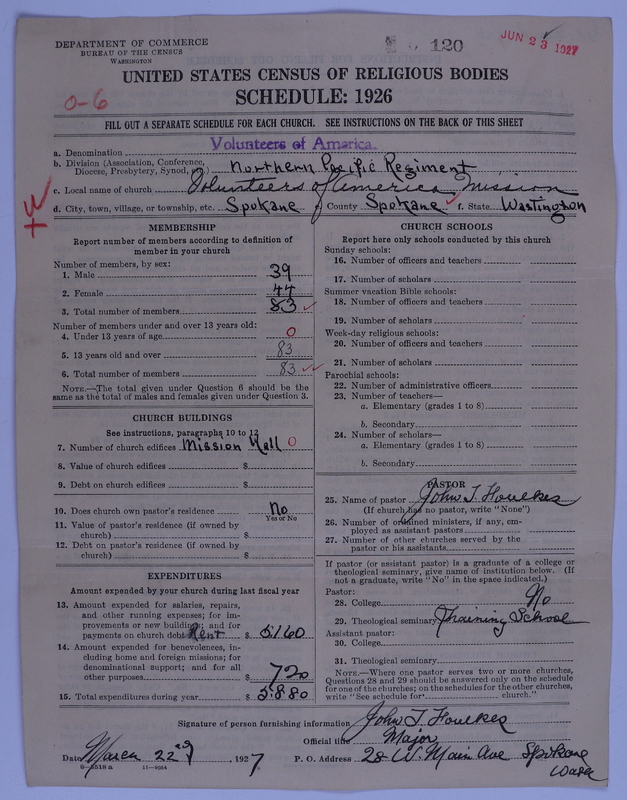 DEPARTMENT OF COMMERCE
BUREAU OF THE CENSUS
WASHINGTON
120
JUN 23 1927
UNITED STATES CENSUS OF RELIGIOUS BODIES
SCHEDULE: 1926
0-6
FILL OUT A SEPARATE SCHEDULE FOR EACH CHURCH. SEE INSTRUCTIONS ON THE BACK OF THIS SHEET
a. Denomination Volunteers of America.
b. Division (Association, Conference, Diocese, Presbytery, Synod, etc.) Northern Pacific Regiment
c. Local name of church Volunteers of America Mission
d. City, town, village, or township, etc. Spokane e. County Spokane f. State Wastington
MEMBERSHIP
Report number of members according to definition of
member in your church
Number of members, by sex:
1. Male 39
2. Female 44
3. Total number of members 83
Number of members under and over 13 years old:
4. Under 13 years of age 0
5. 13 years old and over 83
6. Total number of members 83
NOTE.—The total given under Question 6 should be the
same as the total of males and females given under Question 3.
CHURCH BUILDINGS
See instructions, paragraphs 10 to 12
7. Number of church edifices Mission Hall 0
8. Value of church edifices $
9. Debt on church edifices $
10. Does church own pastor's residence No
Yes or No
11. Value of pastor's residence (if owned by
church) $
12. Debt on pastor's residence (if owned by
church) $
EXPENDITURES
Amount expended by your church during last fiscal year
13. Amount expended for salaries, repairs,
and other running expenses; for im-
provements or new buildings; and for
payments on church debt Rent $ 5160
14. Amount expended for benevolences, in-
cluding home and foreign missions; for
denominational support; and for all
other purposes $ 720
15. Total expenditures during year $ 5880
CHURCH SCHOOLS
Report here only schools conducted by this church
Sunday schools:
16. Number of officers and teachers
17. Number of scholars
Summer vacation Bible schools:
18. Number of officers and teachers
19. Number of scholars
Week-day religious schools:
20. Number of officers and teachers
21. Number of scholars
Parochial schools:
22. Number of administrative officers
23. Number of teachers—
a. Elementary (grades 1 to 8)
b. Secondary
24. Number of scholars—
a. Elementary (grades 1 to 8)
b. Secondary
PASTOR
25. Name of pastor John T. Foulkes
(If church has no pastor, write "None")
26. Number of ordained ministers, if any, em-
ployed as assistant pastors
27. Number of other churches served by the
pastor or his assistants
If pastor (or assistant pastor) is a graduate of a college or
theological seminary, give name of institution below. (If
not a graduate, write "No" in the space indicated.)
Pastor:
28. College No
29. Theological seminary Training School
Assistant pastor:
30. College
31. Theological seminary
NOTE.—Where one pastor serves two or more churches,
Questions 28 and 29 should be answered only on the schedule
for one of the churches; on the schedules for the other churches,
write "See schedule for church."
Signature of person furnishing information John T. Foulkes
Official title Major
Date March 22nd, 1927. P. O. Address 28 W. Main Ave Spokane
Wash
8—5518a 11—9064